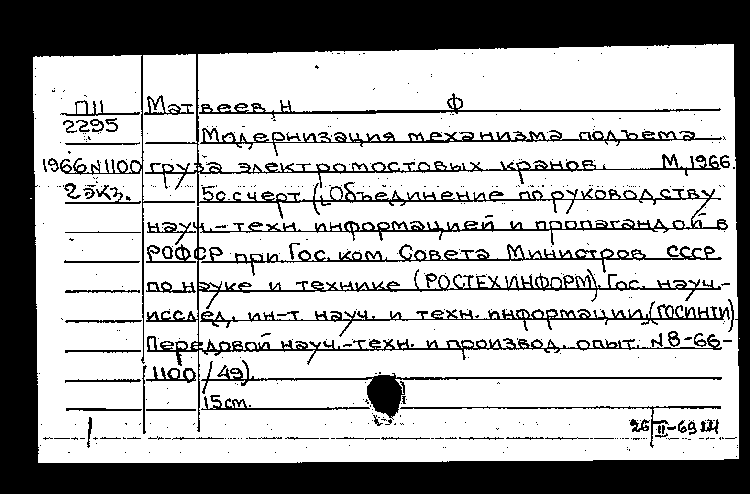 П11 Матвеев, Н Ф
2295 Модернизация механизма подъема
1966 N1100 груза электромостовых кранов. М, 1966.
2 экз. 5с.с черт. (Объединение по руководству
науч.-техн. информацией и пропагандой в
РСФСР при Гос. ком. Совета Министров СССР
по науке и технике (РОСТЕХИНФОРМ). Гос. науч.-
исслед. ин-т науч. и техн. информации. (ГОСИНТИ)
Передовой науч.-техн. и производ. опыт. N8-66-
1100/49).
15 cm.
26/II-69